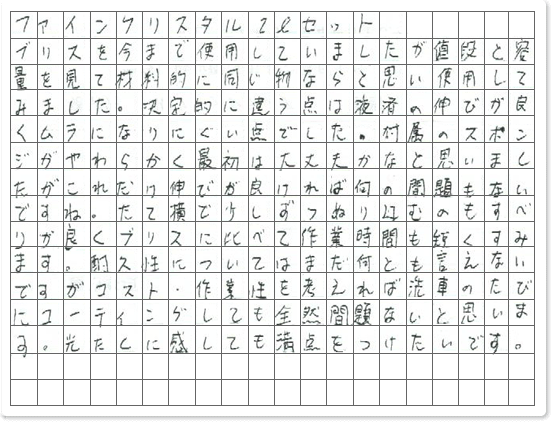 ファインクリスタル2ℓセット
ブリスを今まで使用していましたが値段と容
量を見て材料的に同じ物ならと思い使用して
みました。決定的に違う点は液剤の伸びが良
くムラになりにくい点でした。付属のスポン
ジがやわらかく最初は大丈夫かなと思いまし
たがこれだけ伸びが良ければ何の問題もない
ですね。たて横で少しずつぬりこむのもすべ
りが良くブリスに比べて作業時間も短くすみ
ます。耐久性についてはまだ何とも言えない
ですがコスト・作業性を考えれば洗車のたび
にコーティングしても全然問題ないと思いま
す。光たくに感しても満点をつけたいです。